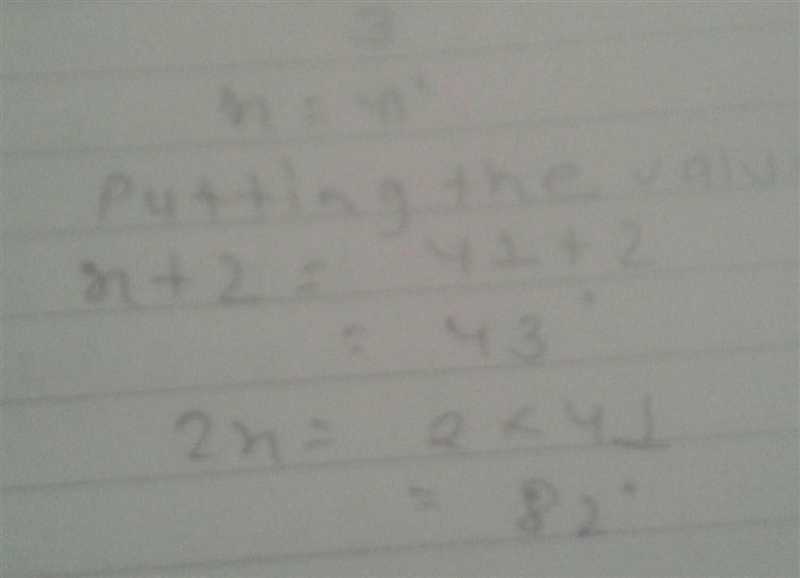 3
n =
Putting the valu
n + 2 = 41 + 2
= 43°
2n = 2 × 41
= 82°